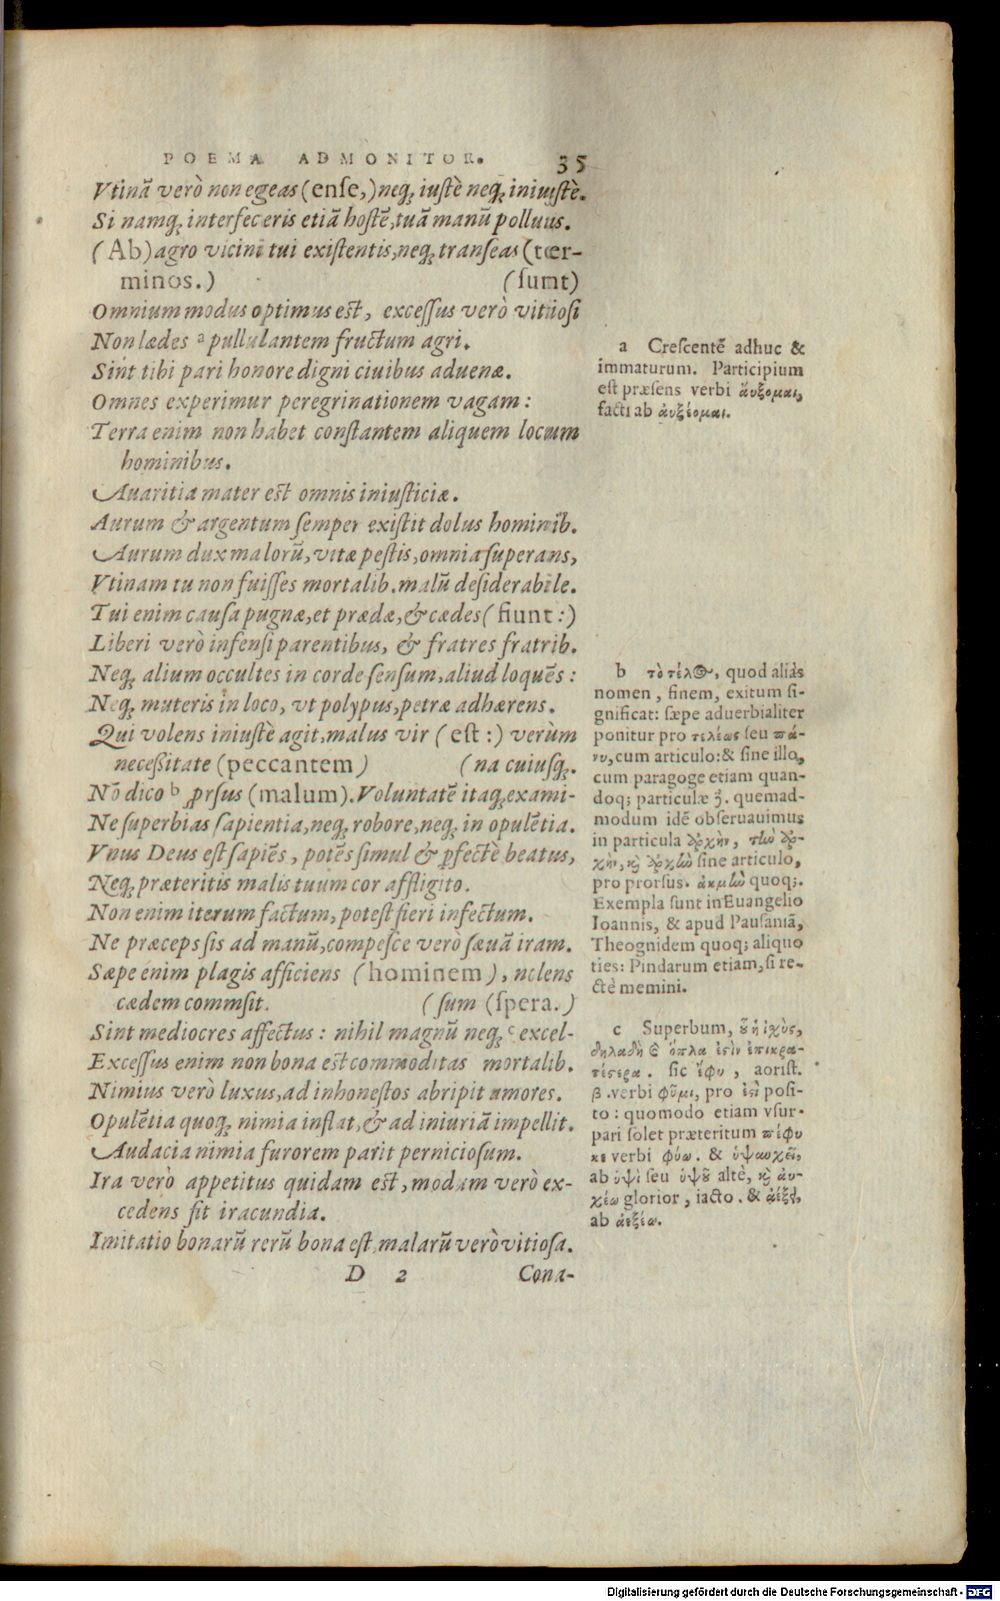 POEMA ADMONITOR. 35
Vtinã verò non egeas (ense,) neq; iustè neq; iniustè.
Si namq; interfeceris etiã hostẽ, tuã manũ polluis.
(Ab) agro vicini tui existentis, neq; transeas (tœr-
minos.) (sunt)
Omnium modus optimus est, excessus verò vitiosi
Non lædes ᵃ pullulantem fructum agri.
Sint tibi pari honore digni ciuibus aduenæ.
Omnes experimur peregrinationem vagam:
Terra enim non habet constantem aliquem locum
hominibus.
Auaritia mater est omnis iniusticiæ.
Aurum & argentum semper existit dolus hominib.
Aurum dux malorũ, vitæ pestis, omnia superans,
Vtinam tu non fuisses mortalib. malũ desiderabile.
Tui enim causa pugnæ, et prædæ, & cædes (fiunt:)
Liberi verò infensi parentibus, & fratres fratrib.
Neq; alium occultes in corde sensum, aliud loquẽs:
Neq; muteris in loco, vt polypus, petræ adhærens.
Qui volens iniustè agit, malus vir (est:) verùm
necessitate (peccantem) (na cuiusq;.
Nõ dico ᵇ ꝓrsus (malum). Voluntatẽ itaq; exami-
Ne superbias sapientia, neq; robore, neq; in opulẽtia.
Vnus Deus est sapiẽs, potẽs simul & ꝑfectè beatus,
Neq; præteritis malis tuum cor affligito.
Non enim iterum factum, potest fieri infectum.
Ne præceps sis ad manũ, compesce verò sæuã iram.
Sæpe enim plagis afficiens (hominem), nolens
cædem commsit. (sum (spera.)
Sint mediocres affectus: nihil magnũ neq; ᶜ excel-
Excessus enim non bona est commoditas mortalib.
Nimius verò luxus, ad inhonestos abripit amores.
Opulẽtia quoq; nimia inflat, & ad iniuriã impellit.
Audacia nimia furorem parit perniciosum.
Ira verò appetitus quidam est, modum verò ex-
cedens fit iracundia.
Imitatio bonarũ rerũ bona est, malarũ verò vitiosa.
D 2 Cona-
a Crescentẽ adhuc &
immaturum. Participium
est præsens verbi ἄυξομαι,
facti ab ἀυξέομαι.
b τὸ τέλος, quod aliàs
nomen, finem, exitum si-
gnificat: sæpe aduerbialiter
ponitur pro τελέως seu πά-
νυ, cum articulo: & sine illo,
cum paragoge etiam quan-
doq; particulæ γ. quemad-
modum idẽ obseruauimus
in particula ἀρχὴν, τὴν ἀρ-
χὴν, καὶ ἀρχὴν sine articulo,
pro prorsus. ἀκμὴν quoq;.
Exempla sunt in Euangelio
Ioannis, & apud Pausaniã,
Theognidem quoq; aliquo
ties: Pindarum etiam, si re-
ctè memini.
c Superbum, οὗ ἡ ἰχὺς,
δηλαδὴ ὅπλα ἐσὶν ἐπικρα-
τέστερα. sic ἔφυ, aorist.
β. verbi φῦμι, pro ἐστὶ posi-
to: quomodo etiam vsur-
pari solet præteritum πέφυ
κε verbi φύω. & ὑψαυχεῖν,
ab ὑψὶ seu ὑψοῦ altè, καὶ αὐ-
χέω glorior, iacto. & ἀέξῃ,
ab ἀεξέω.
Digitalisierung gefördert durch die Deutsche Forschungsgemeinschaft - DFG